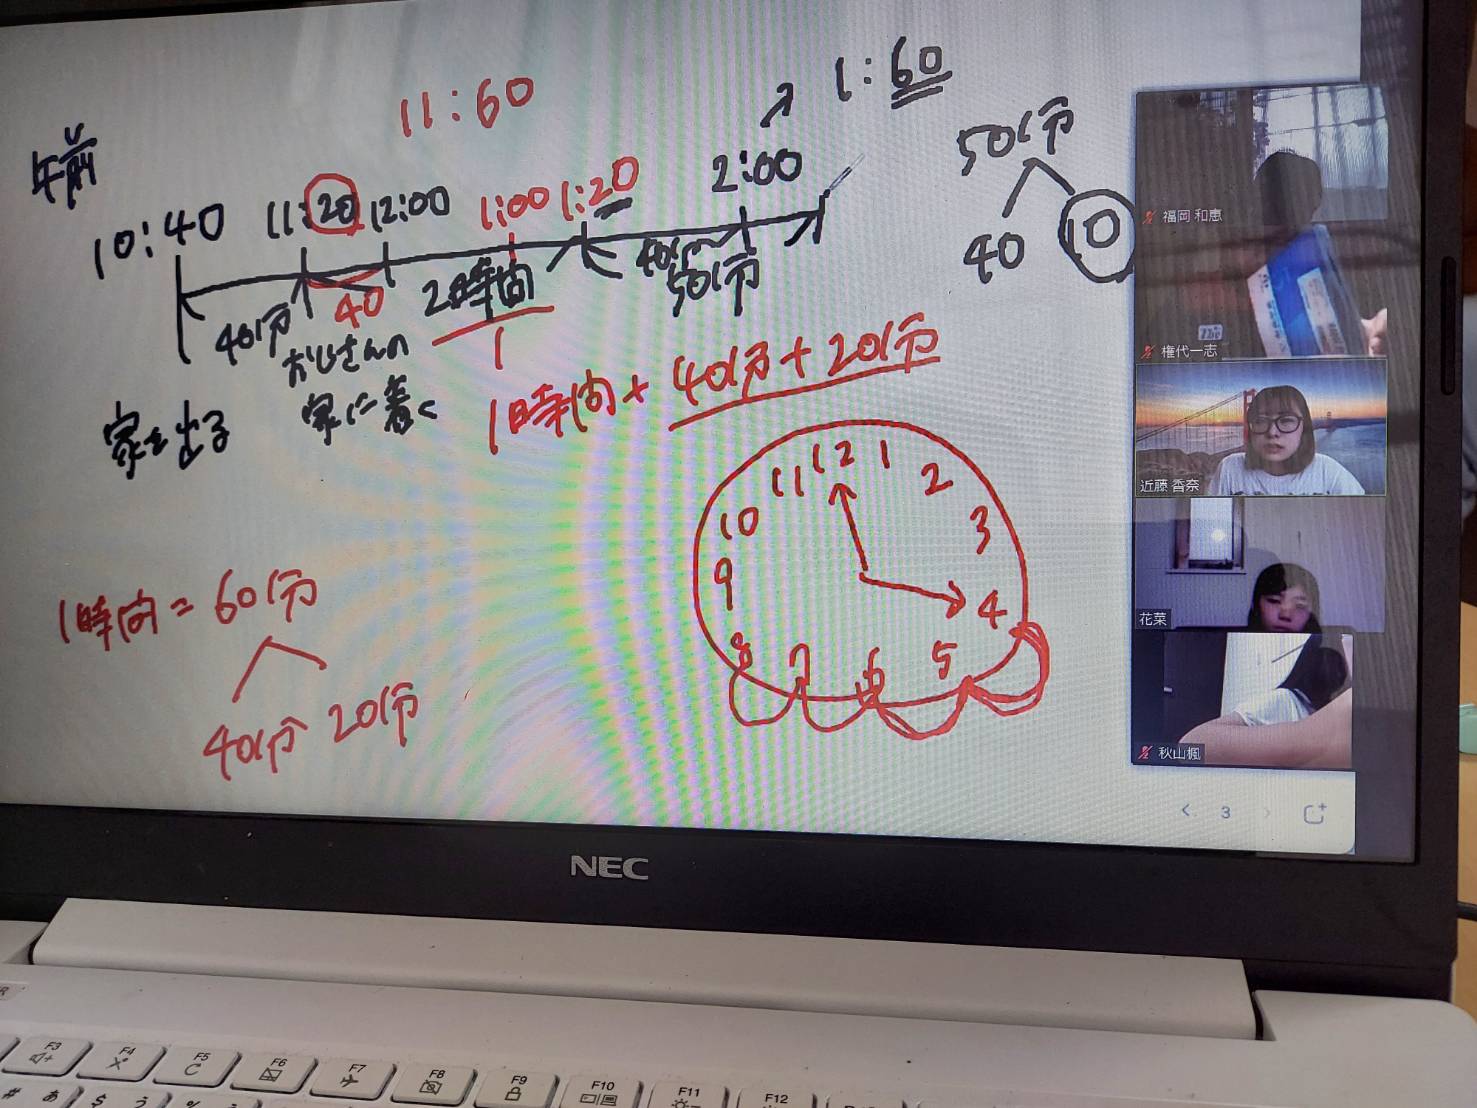 11:60
1:60
午前
10:40 11:20 12:00 1:00 1:20 2:00
50分
40 10
40分 40 2時間 40分 50分
1
おじさんの
家に着く
家を出る
1時間+40分+20分
12 1 2 3 4 5 6 7 8 9 10 11
1時間=60分
40分 20分
福岡 和恵
権代一志
近藤 香奈
花菜
秋山楓
< 3 >
NEC
F3 F4 F5 F6 F7 F8 F9 F10 F11 F12
# あ $ う %